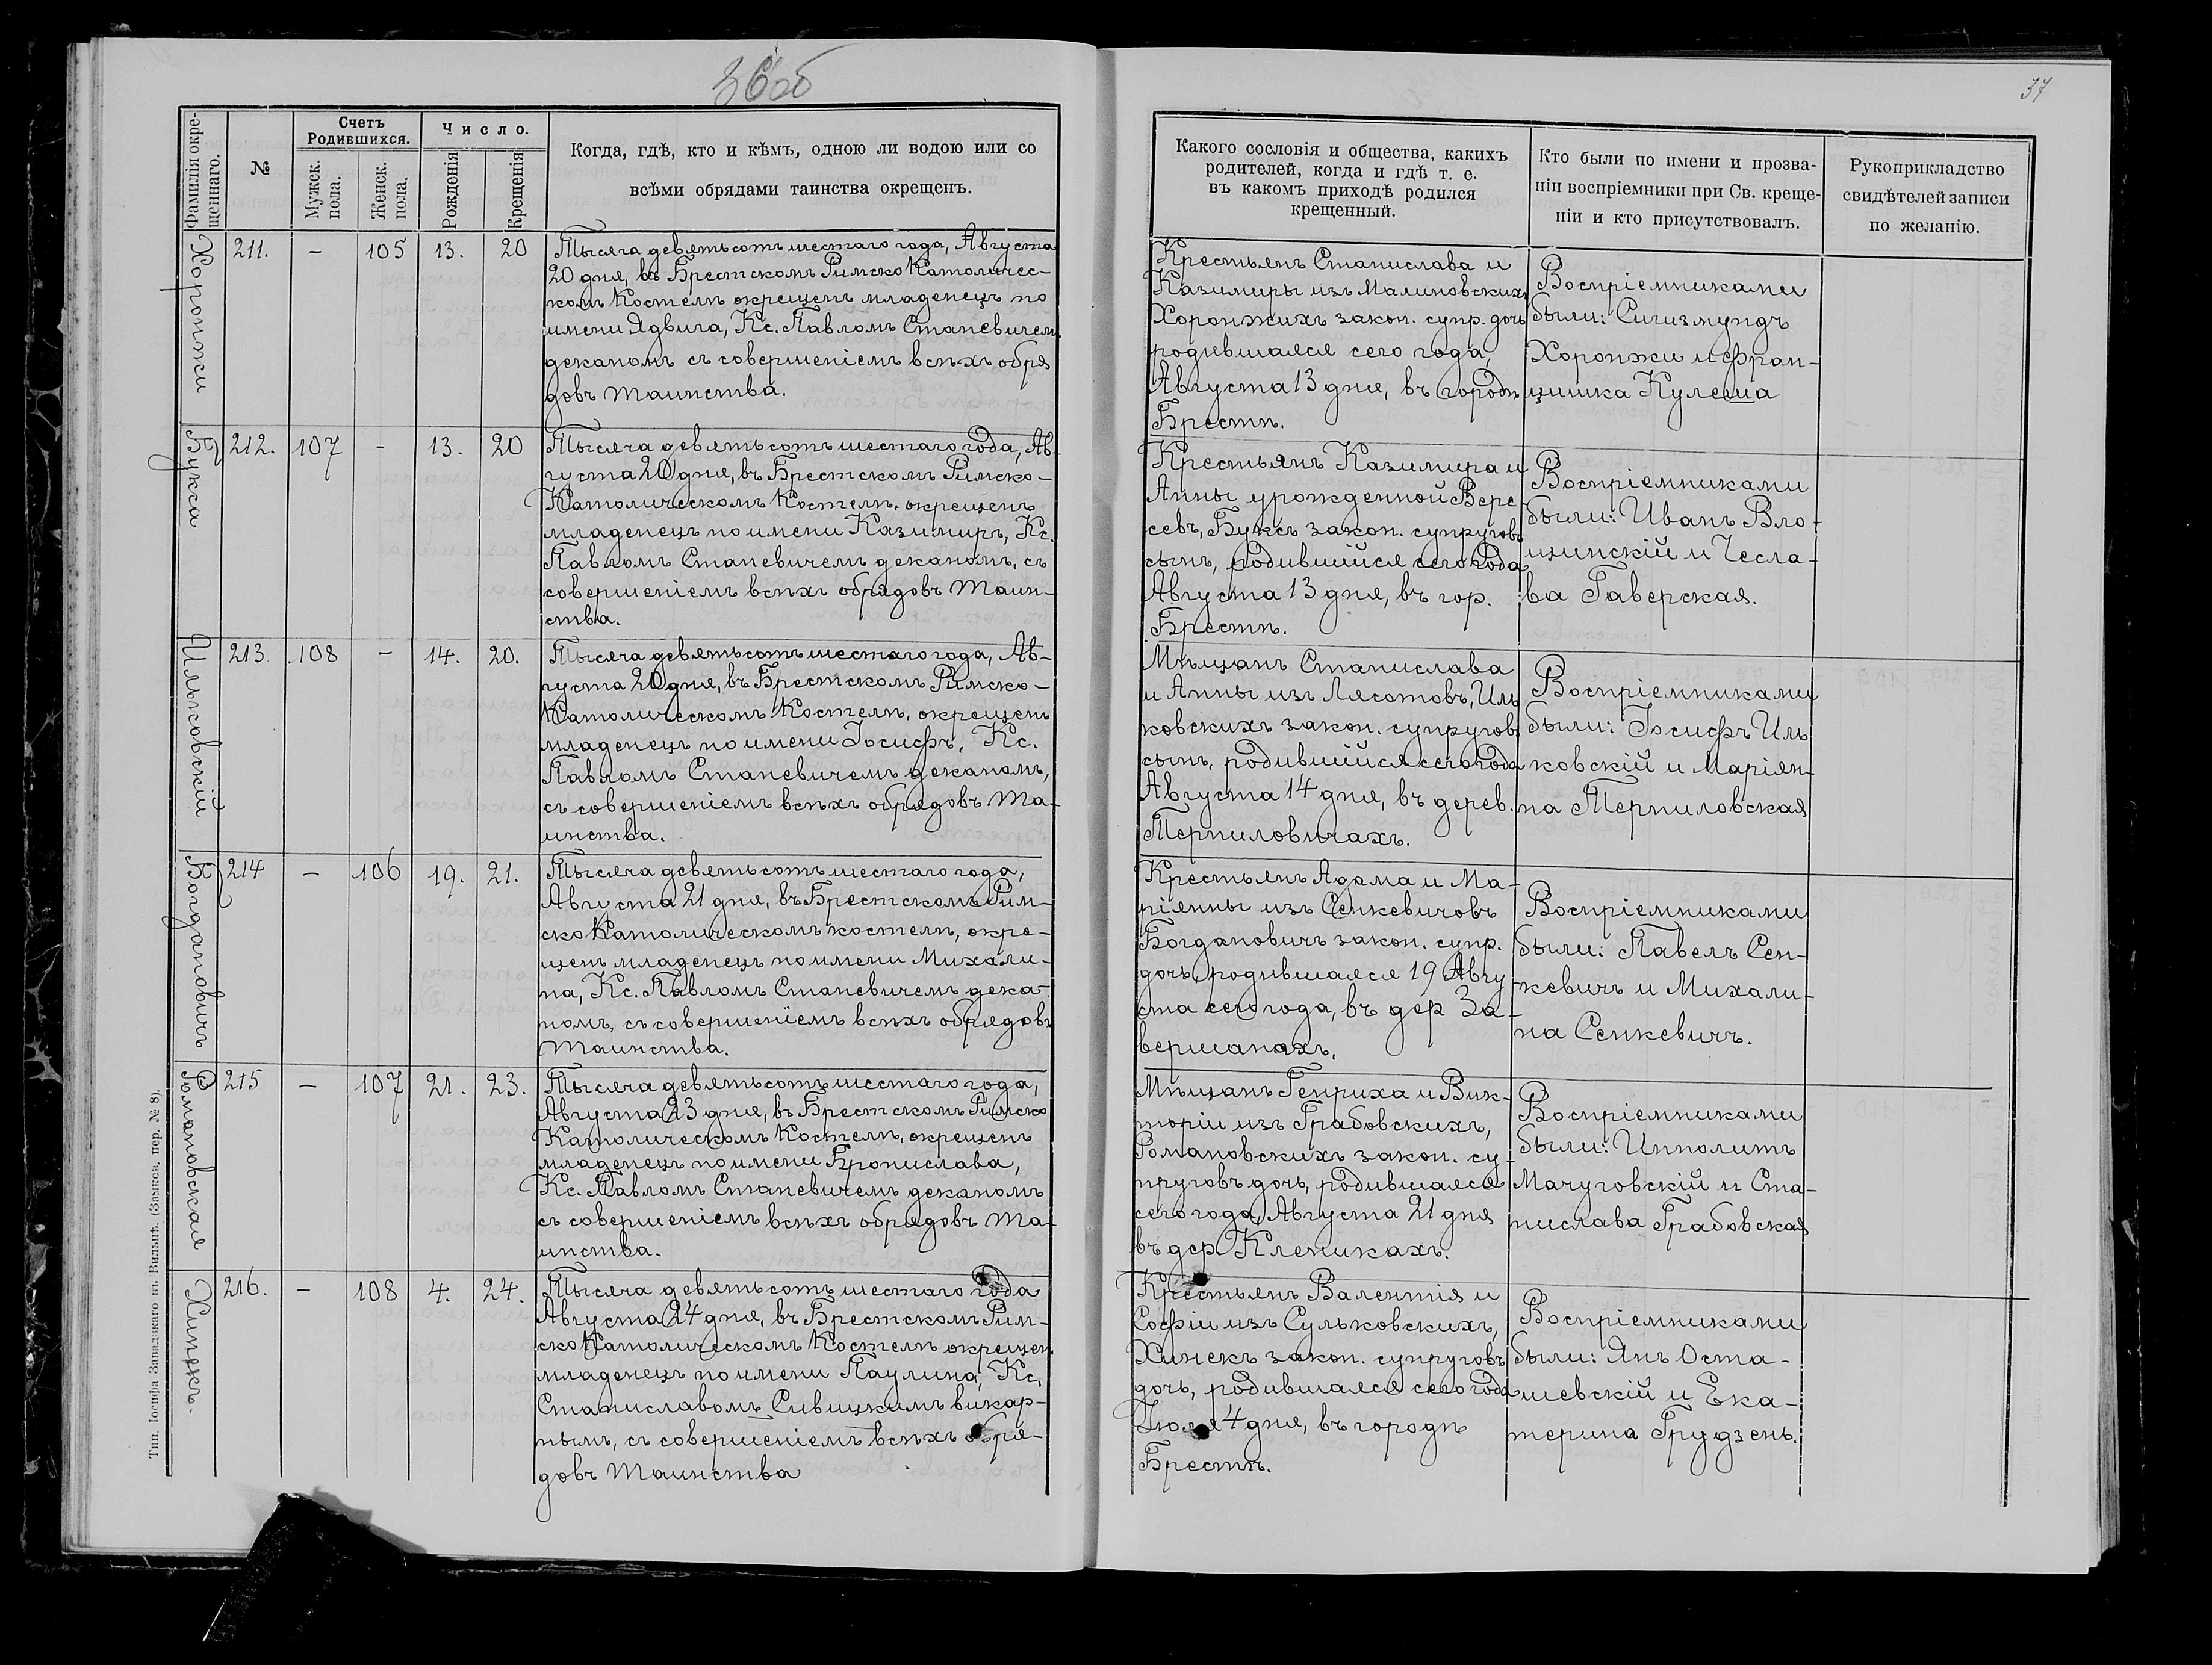 36об
37
Фамилія окре-
щеннаго.
№
Счетъ
Родившихся.
Мужск.
пола.
Женск.
пола.
Число.
Рожденія
Крещенія
Когда, гдѣ, кто и кѣмъ, одною ли водою или со
всѣми обрядами таинства окрещенъ.
Какого сословія и общества, какихъ
родителей, когда и гдѣ т. е.
въ какомъ приходѣ родился
крещенный.
Кто были по имени и прозва-
ніи воспріемники при Св. креще-
ніи и кто присутствовалъ.
Рукоприкладство
свидѣтелей записи
по желанію.
Хоронжи
211.
–
105
13.
20
Тысяча девятьсотъ шестаго года, Августа
20 дня, въ Брестскомъ Римско Католичес-
комъ Костелѣ окрещенъ младенецъ по
имени Ядвига, Кс. Павломъ Станевичем
деканомъ съ совершеніемъ всѣхъ обря
довъ таинства.
Крестьянъ Станислава и
Казимиры изъ Малиновскихъ
Хоронжихъ закон. супр. дочь
родившаяся сего года,
Августа 13 дня, въ городѣ
Брестѣ.
Воспріемниками
были: Сигизмундъ
Хоронжи и Фран-
цишка Кулеша
Букса
212.
107
-
13.
20
Тысяча девятьсотъ шестаго года, Ав-
густа 20 дня, въ Брестскомъ Римско-
Католическомъ Костелѣ, окрещенъ
младенецъ по имени Казимиръ, Кс.
Павломъ Станевичемъ деканомъ, съ
совершеніемъ всѣхъ обрядовъ Таин-
ства.
Крестьянъ Казимира и
Анны урожденной Вере
севъ, Буксъ закон. супруговъ
сынъ, родившійся сего года
Августа 13 дня, въ гор.
Брестѣ.
Воспріемниками
были: Иванъ Вло-
щинскій и Чесла-
ва Гаверская.
Ильковскій
213.
108
–
14.
20.
Тысяча девятьсотъ шестаго года, Ав-
густа 20 дня, въ Брестскомъ Римско-
Католическомъ Костелѣ, окрещенъ
младенецъ по имени Іосифъ, Кс.
Павломъ Станевичемъ деканомъ,
съ совершеніемъ всѣхъ обрядовъ Та-
инства.
Мѣщанъ Станислава
и Анны изъ Лясотовъ, Иль
ковскихъ закон. супруговъ
сынъ, родившійся сего года
Августа 14 дня, въ дерев.
Терпиловичахъ.
Воспріемниками
были: Іосифъ Иль
ковскій и Маріян-
на Терпиловская
Богдановичъ
214
–
106
19.
21.
Тысяча девятьсотъ шестаго года,
Августа 21 дня, въ Брестскомъ Рим-
ско Католическомъ костелѣ, окре-
щенъ младенецъ по имени Михали-
на, Кс. Павломъ Станевичемъ дека-
номъ, съ совершеніемъ всѣхъ обрядовъ
Таинства.
Крестьянъ Адама и Ма-
ріянны изъ Сенкевичовъ
Богдановичъ закон. супр.
дочь, родившаяся 19 Авгу
ста сего года, въ дер За-
вершанахъ,
Воспріемниками
были: Павелъ Сен-
кевичъ и Михали-
на Сенкевичъ.
Романовская
215
–
107
21.
23.
Тысяча девятьсотъ шестаго года,
Августа 23 дня, въ Брестскомъ Римско
Католическомъ Костелѣ, окрещенъ
младенецъ по имени Брониславa,
Кс. Павломъ Станевичемъ деканомъ
съ совершеніемъ всѣхъ обрядовъ Та-
инства.
Мѣщанъ Генриха и Вик-
торіи изъ Грабовскихъ,
Романовскихъ закон. су-
пруговъ дочь, родившаяся
сего года, Августа 21 дня
въ дер Клепикахъ.
Воспріемниками
были: Ипполитъ
Мачуговскій и Ста-
нислава Грабовская
Хинекъ.
216.
–
108
4.
24.
Тысяча девятьсотъ шестаго года
Августа 24 дня, въ Брестскомъ Рим-
ско Католическомъ Костелѣ окрещен
младенецъ по имени Паулина, Кс.
Станиславомъ Сивицкимъ викар-
нымъ, съ совершеніемъ всѣхъ обря-
довъ Таинства
Крестьянъ Валентія и
Софіи изъ Сульковскихъ,
Хинекъ закон. супруговъ
дочь, родившаяся сего года
Іюля 4 дня, въ городѣ
Брестѣ.
Воспріемниками
были: Янъ Оста-
шевскій и Ека-
терина Грудзень.
Тип. Іосифа Завадзкаго въ Вильнѣ. (Замков. пер. № 8).